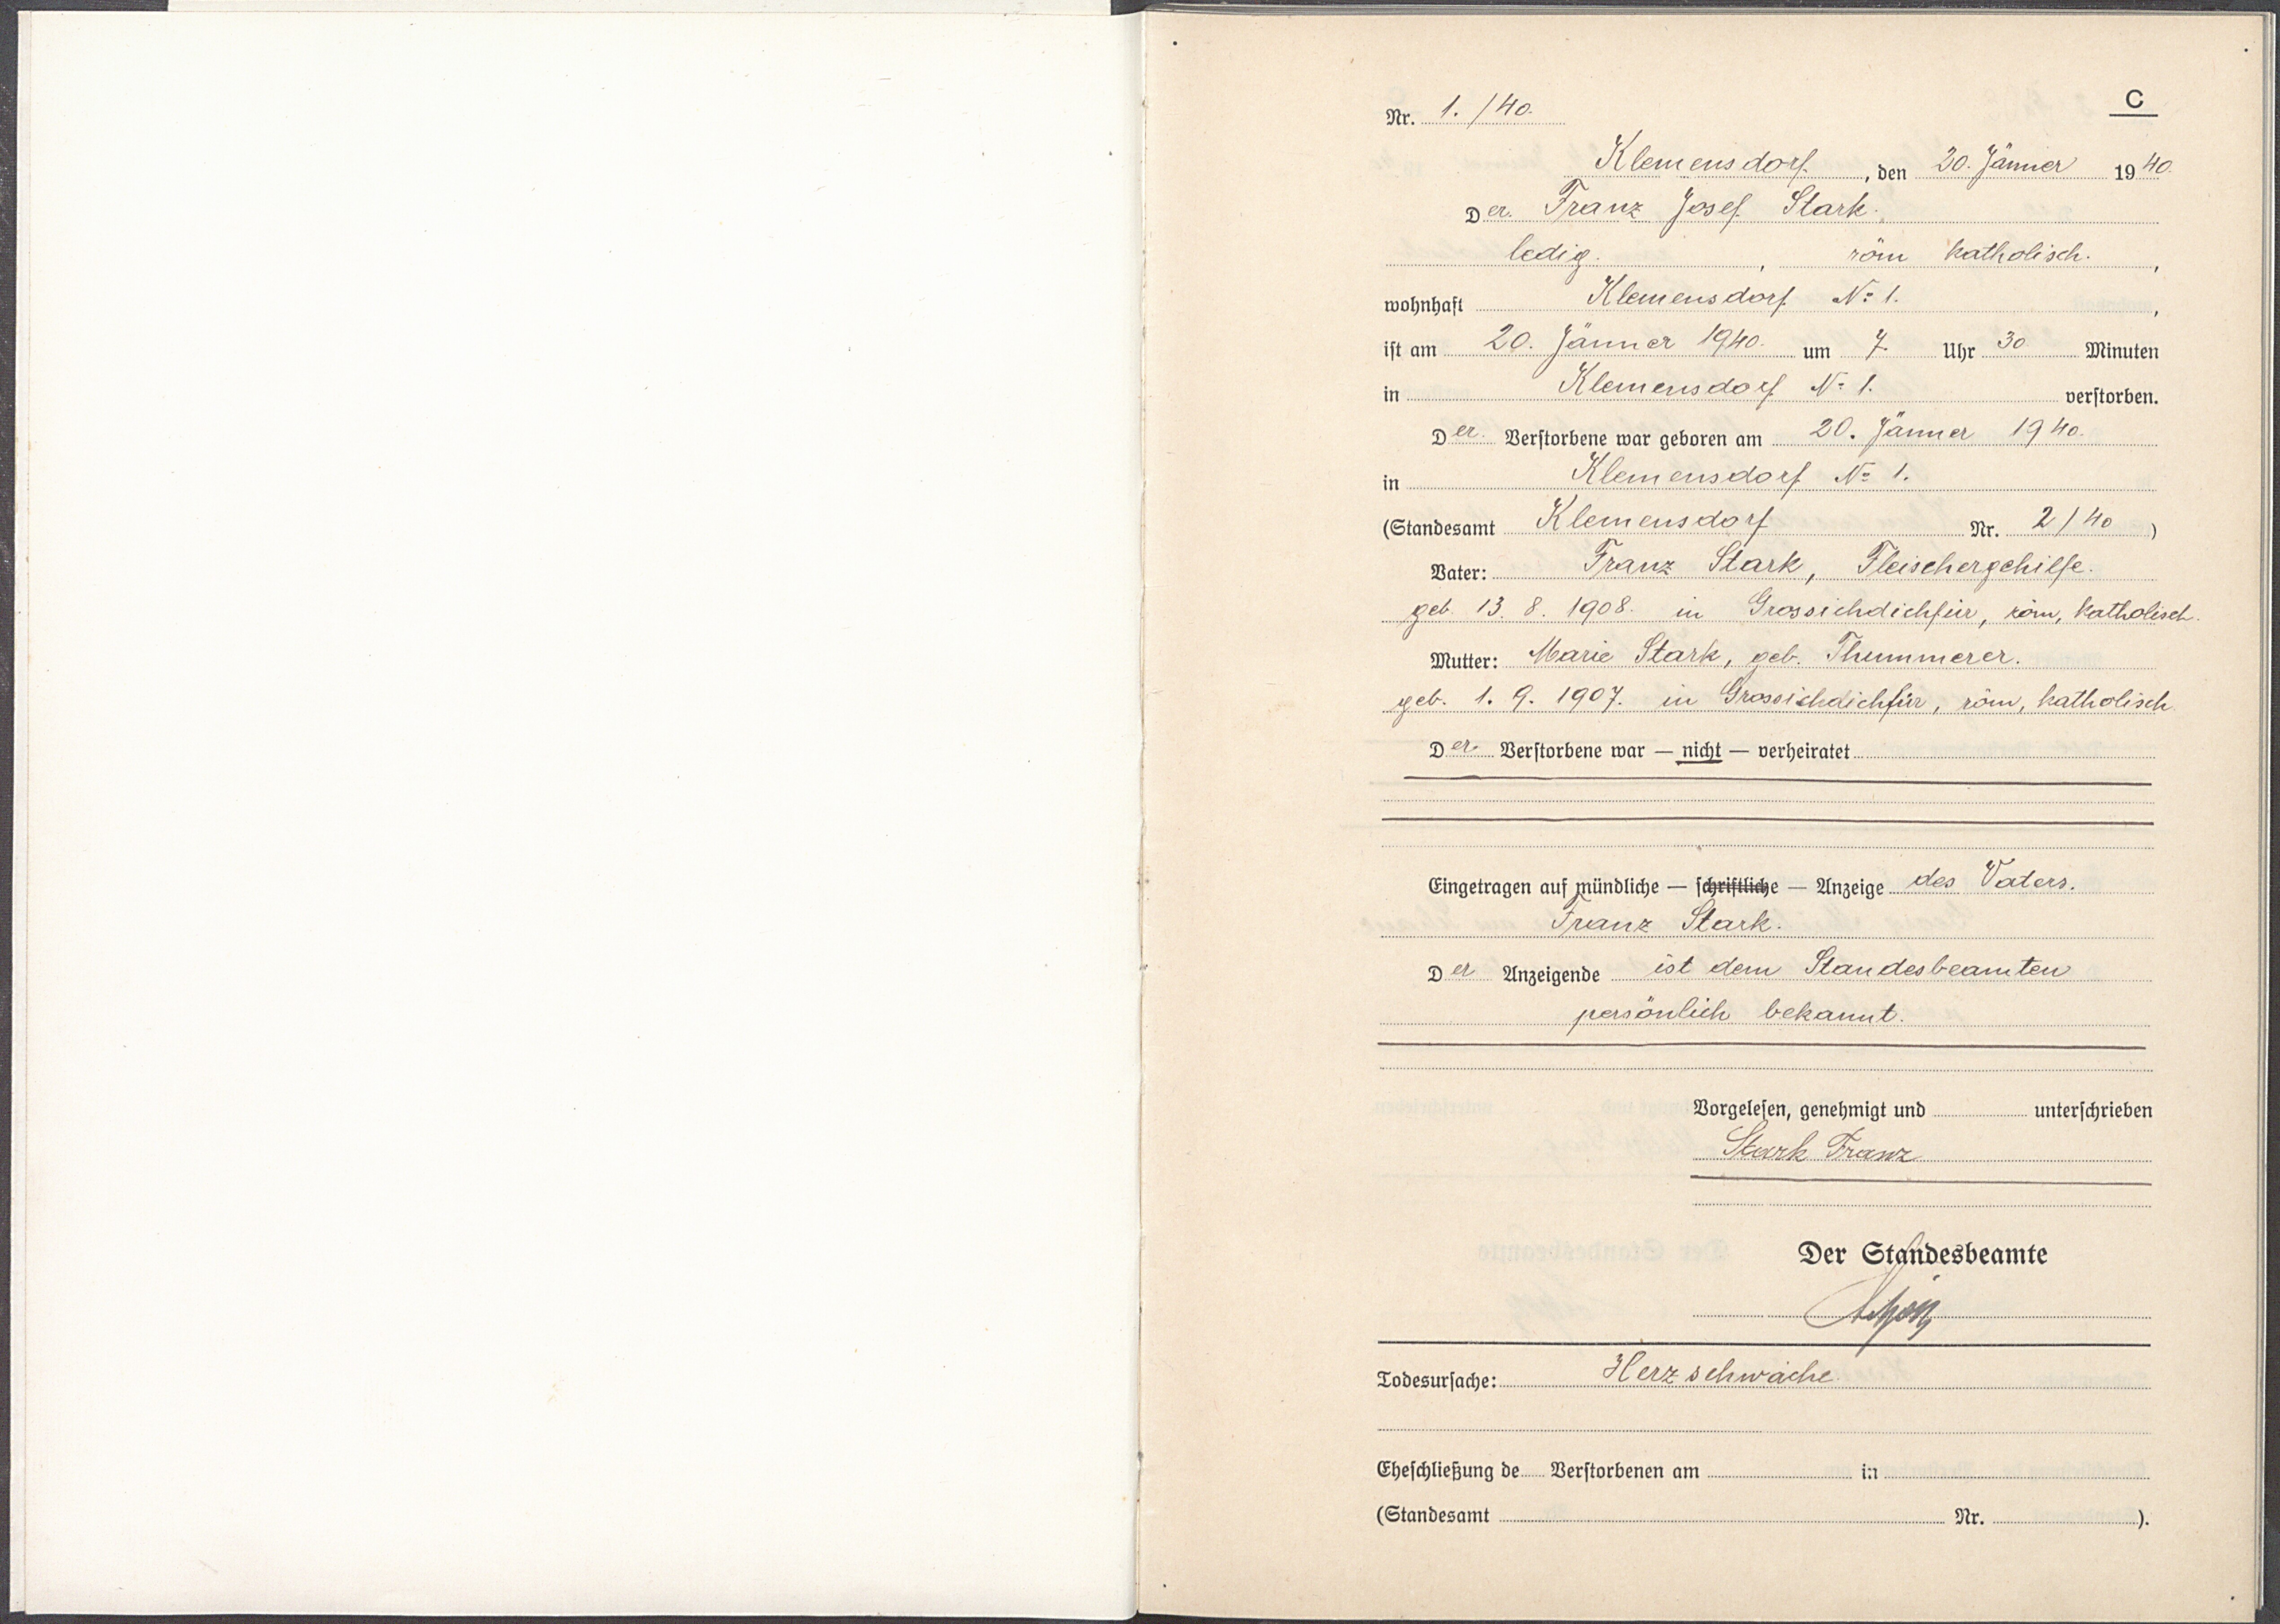 C
Nr. 1./40.
Klemensdorf, den 20. Jänner 1940.
Der. Franz Josef Stark.
ledig., röm katholisch.,
wohnhaft Klemensdorf No 1.,
ist am 20. Jänner 1940. um 7. Uhr 30 Minuten
in Klemensdorf No 1. verstorben.
Der. Verstorbene war geboren am 20. Jänner 1940.
in Klemensdorf No 1.
(Standesamt Klemensdorf Nr. 2/40)
Vater: Franz Stark, Fleischergehilfe.
geb. 13. 8. 1908. in Grossichdichfür, röm, katholisch.
Mutter: Marie Stark, geb. Thummerer.
geb. 1. 9. 1907. in Grossichdichfür, röm, katholisch.
Der. Verstorbene war — nicht — verheiratet
Eingetragen auf mündliche — schriftliche — Anzeige des Vaters.
Franz Stark.
Der Anzeigende ist dem Standesbeamten
persönlich bekannt.
Vorgelesen, genehmigt und unterschrieben
Stark Franz
Der Standesbeamte
Todesursache: Herzschwäche.
Eheschließung de Verstorbenen am in
(Standesamt Nr. ).